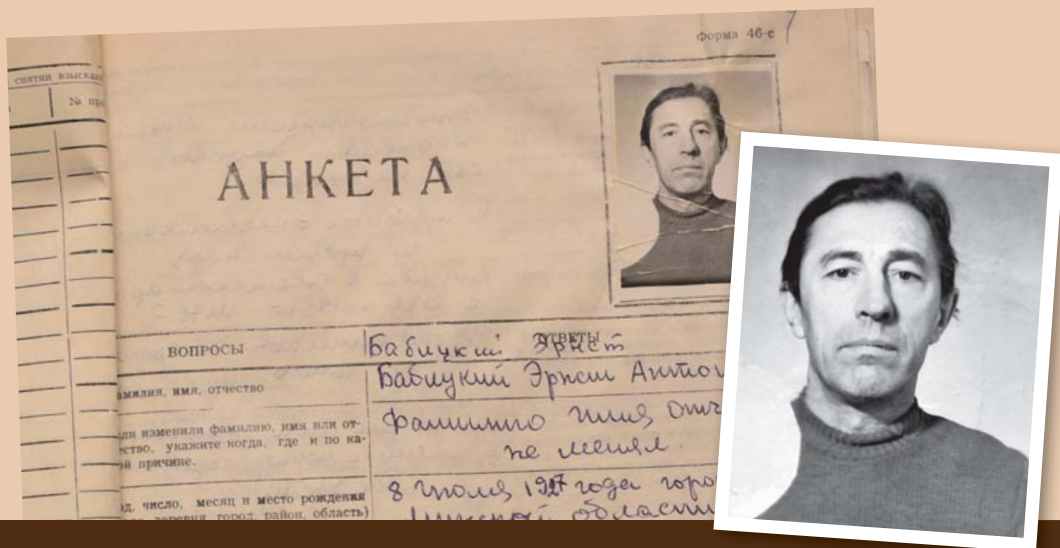 Форма 46-е
снятии взыска
№ пр
АНКЕТА
ВОПРОСЫ
ОТВЕТЫ
Бабицкий Эрнст
амилия, имя, отчество
Бабицкий Эрнст Антон
ли изменили фамилию, имя или от-
ество, укажите когда, где и по ка-
й причине.
Фамилию имя отч
не менял.
од, число, месяц и место рождения
деревня, город, район, область)
8 июля 1927 года горо
Минской области